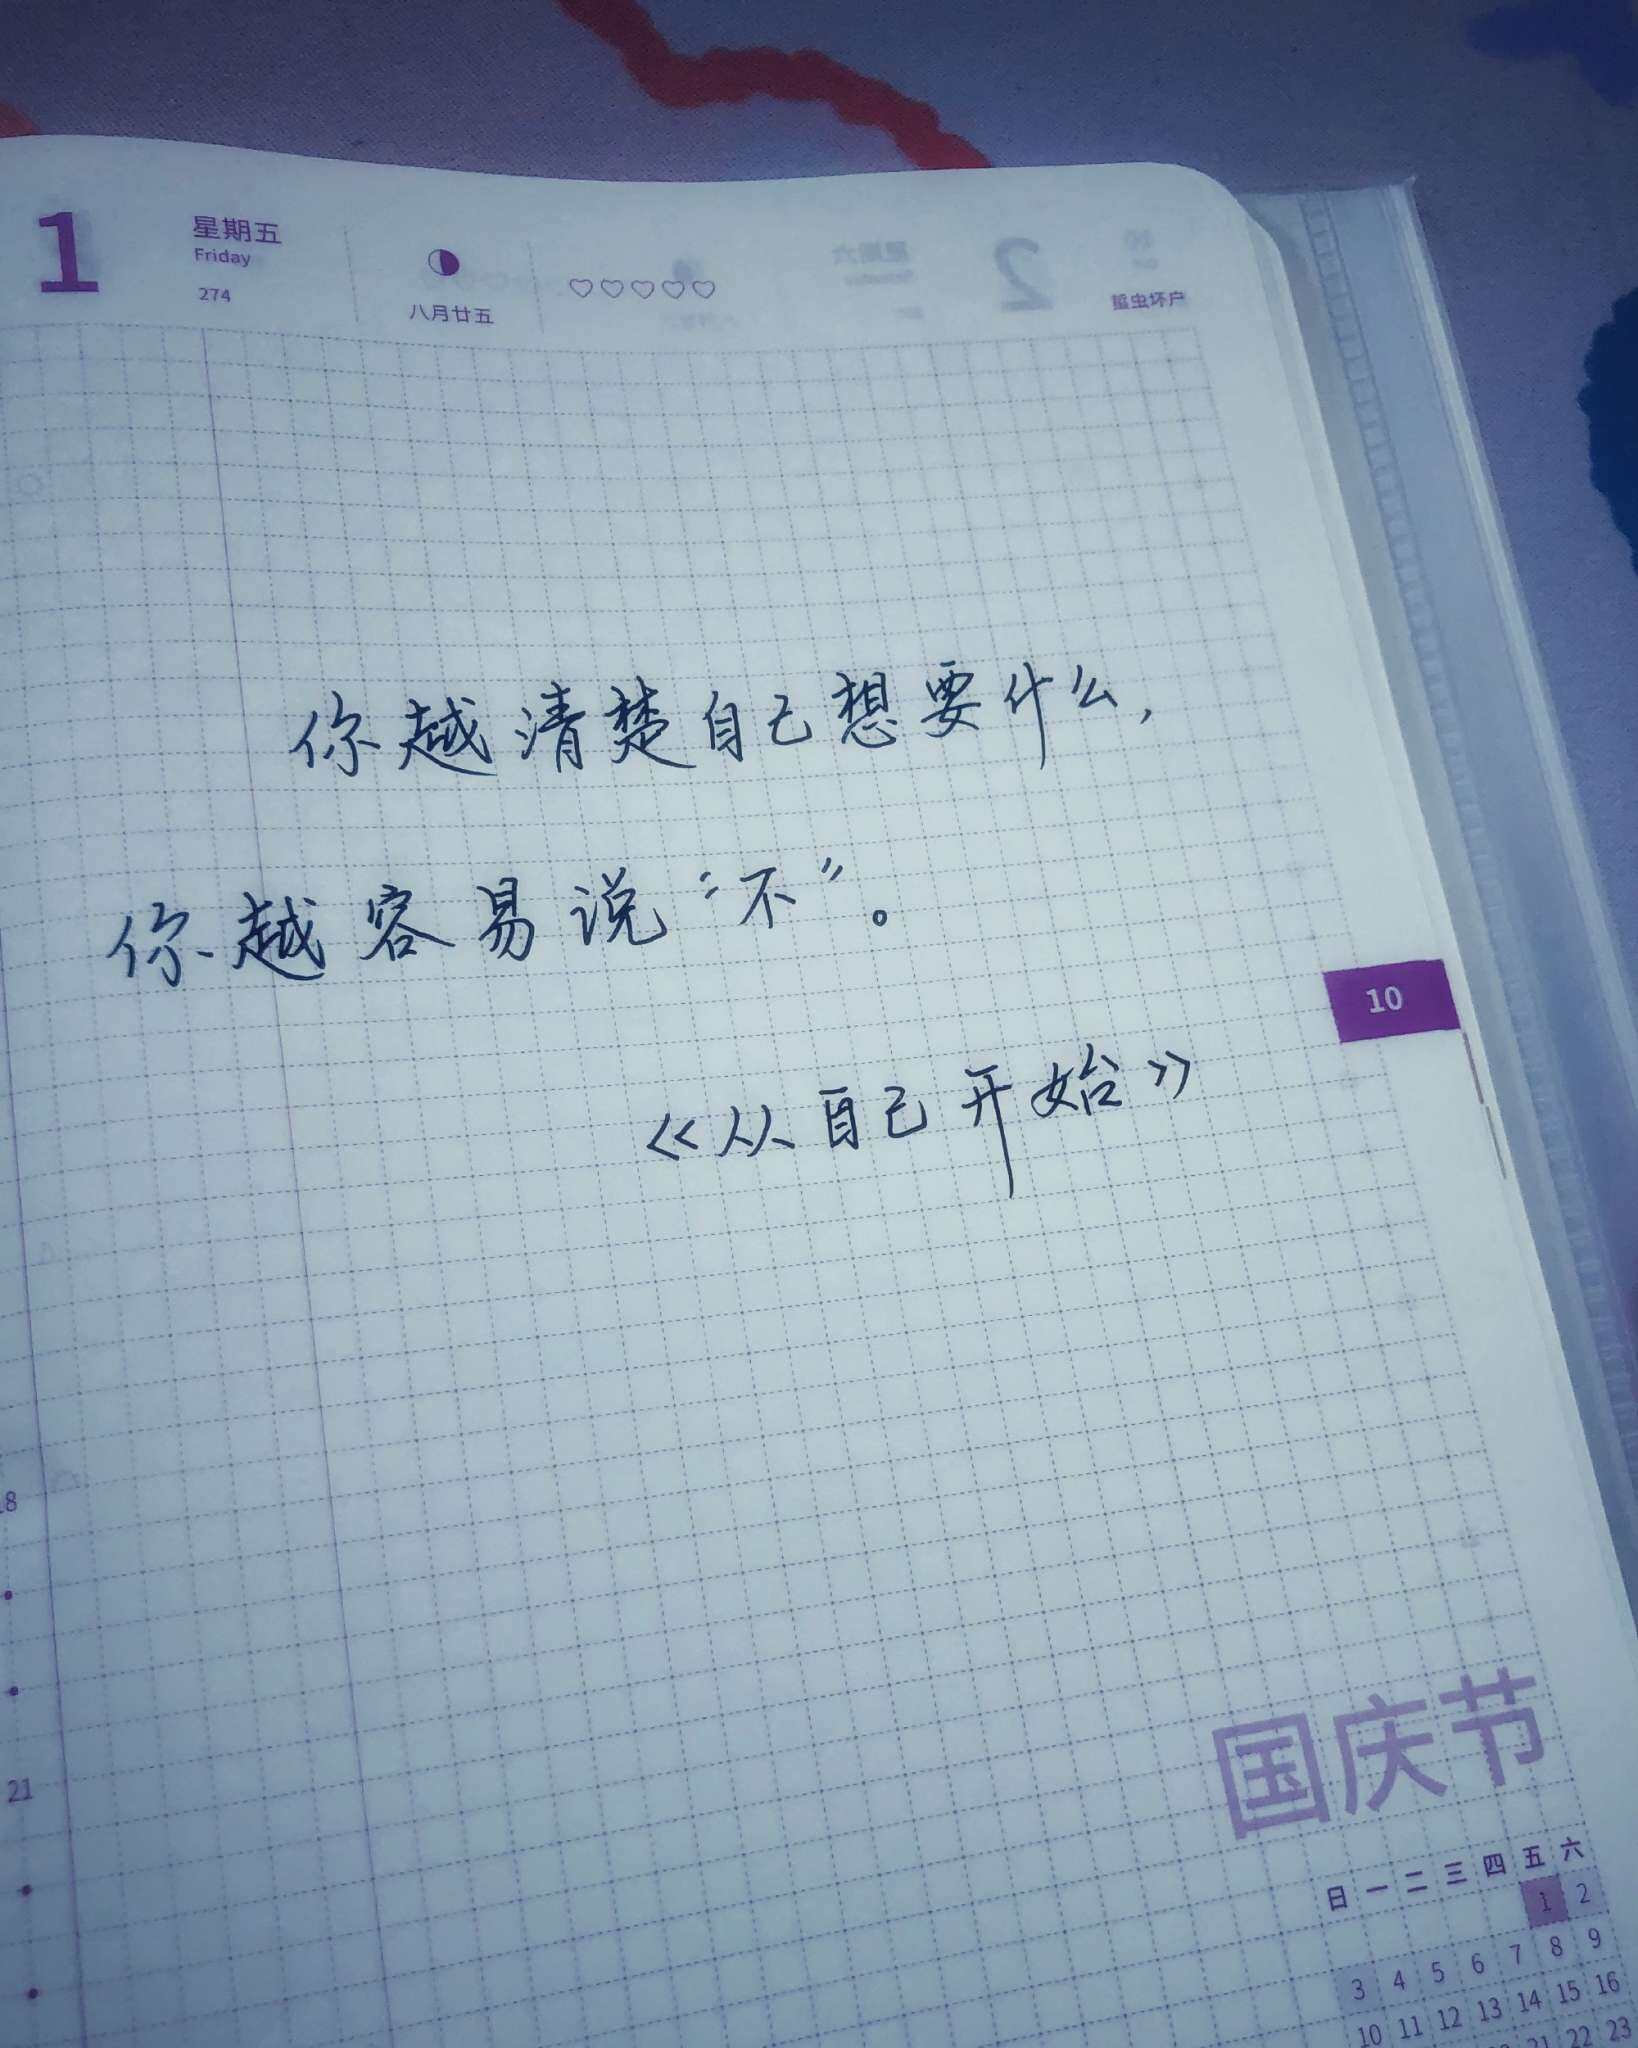 1
星期五
Friday
274
八月廿五
蛰虫坏户
你越清楚自己想要什么,
你越容易说“不”。
《从自己开始》
10
18
21
国庆节
日 一 二 三 四 五 六
1 2
3 4 5 6 7 8 9
10 11 12 13 14 15 16
21 22 23